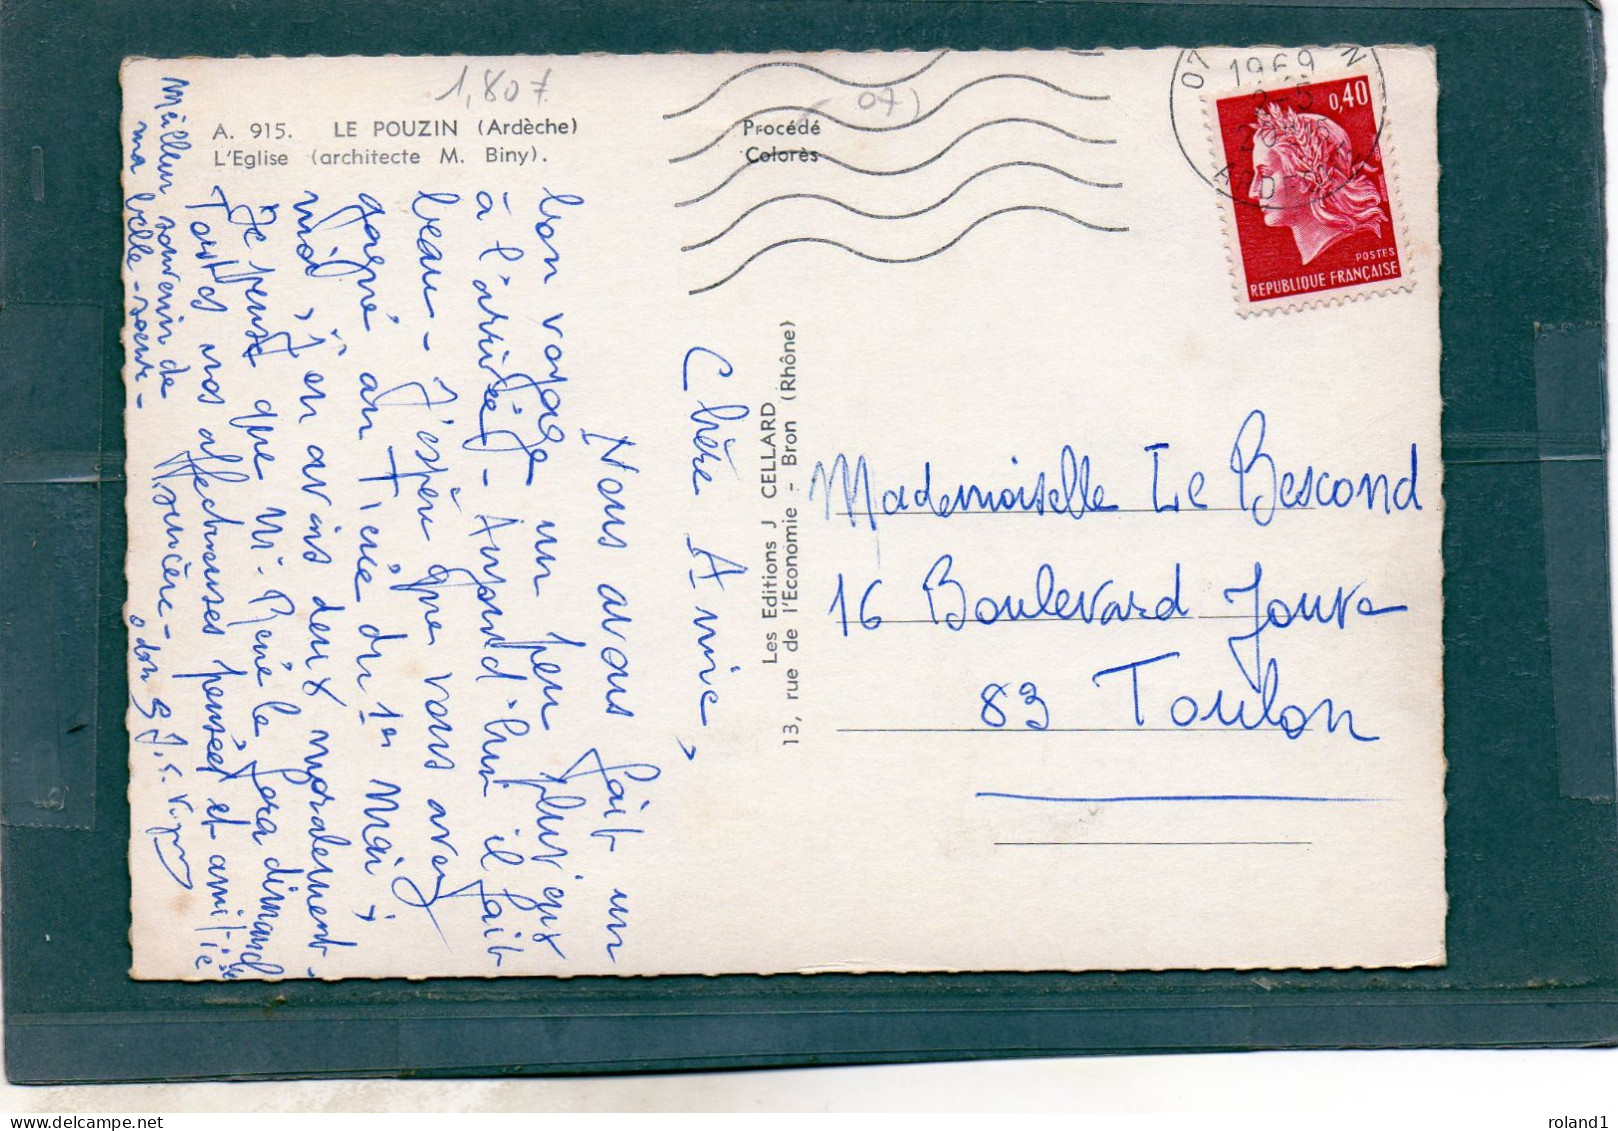 1,807
(07)
A. 915. LE POUZIN (Ardèche)
L'Eglise (architecte M. Biny).
Procédé
Colorès
07
1969
ARDECHE
0,40
POSTES
REPUBLIQUE FRANÇAISE
Les Editions J CELLARD
13, rue de l'Economie - Bron (Rhône)
Chère Amie,
Nous avons fait un
bon voyage un peu pluvieux
à l'arrivée - Aujourd'hui il fait
beau - J'espère que vous avez
gagné au Tiercé du 1er Mai,
moi, j'en avais deux moralement -
Je pense que M. René le fera dimanche
Toutes nos affectueuses pensées et amitiés
Meilleur souvenir de
ma belle-soeur -
Mademoiselle Le Bescond
16 Boulevard Jouve
83 Toulon
roland1